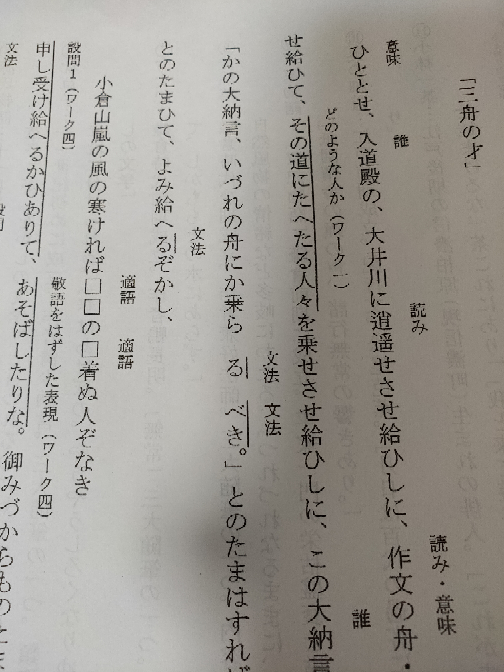 「三舟の才」
意味　誰　読み　読み・意味
ひととせ、入道殿の、大井川に逍遥せさせ給ひしに、作文の舟・
どのような人か（ワーク一）　誰
せ給ひて、その道にたへたる人々を乗せさせ給ひしに、この大納言
文法　文法　文法
「かの大納言、いづれの舟にか乗ら　る　べき。」とのたまはすれば
とのたまひて、よみ給へるぞかし、
適語　適語
小倉山嵐の風の寒ければ□□の□着ぬ人ぞなき
設問１（ワーク四）　敬語をはずした表現（ワーク四）
申し受け給へるかひありて、あそばしたりな。御みづからものた
文法